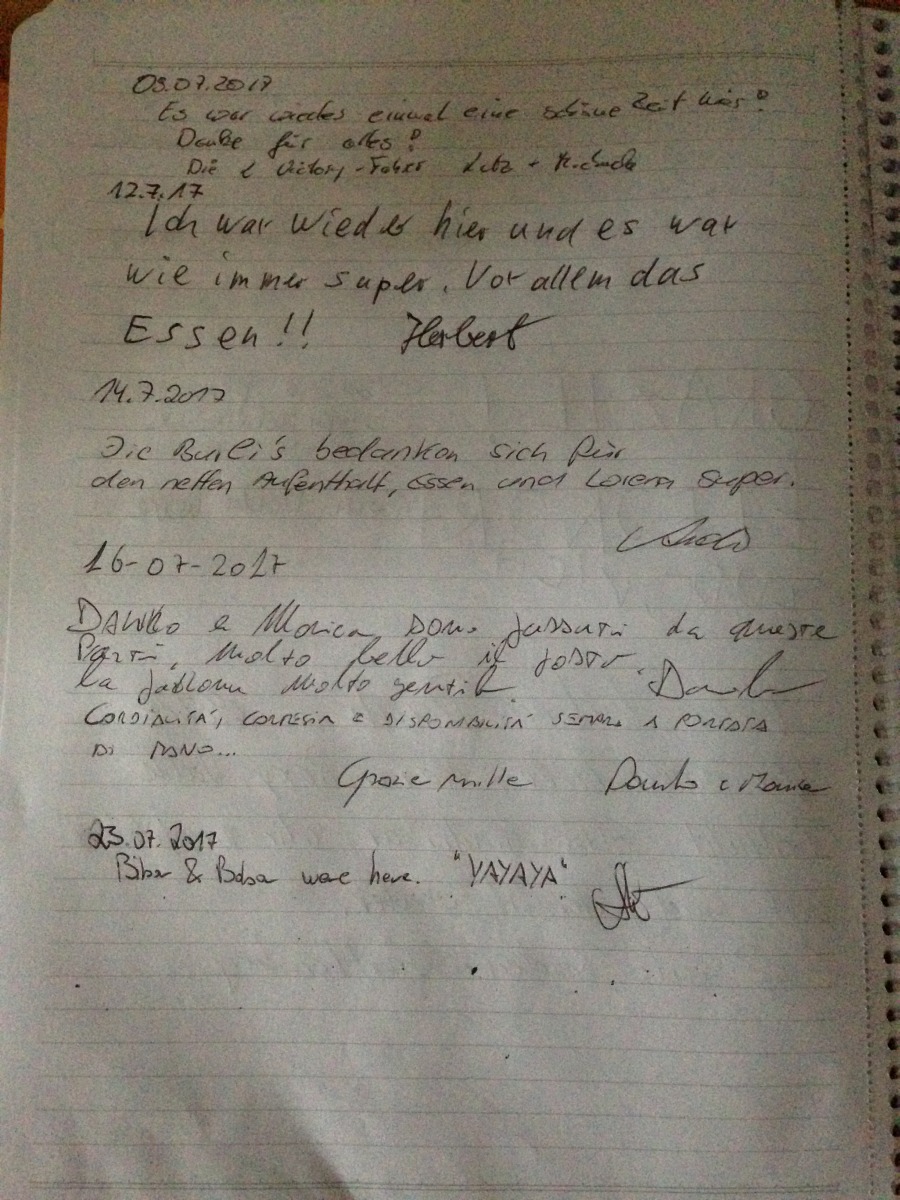 03.07.2017
Es war wieder einmal eine schöne Zeit hier!
Danke für alles!
Die 2 Victory-Fahrer Lutz + Michaela
12.7.17
Ich war wieder hier und es war
wie immer super. Vor allem das
Essen!! Herbert
14.7.2017
Die Burli's bedanken sich für
den netten Aufenthalt, Essen und Lorena super.
16-07-2017
DANILO e Monica sono passati da queste
Parti, molto bello il posto.
la padrona molto gentile
CORDIALITÁ, CORTESIA E DISPONIBILITÁ SEMPRE A PORTATA
DI MANO...
Grazie mille Danilo e Monica
23.07.2017
Biba & Boba were here. "YAYAYA"